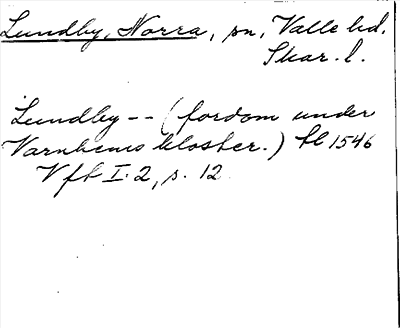 Lundby, Norra, sn, Valle hd.
Skar. l.
Lundby -- (fordom under
Varnhems kloster.) fl 1546
Vft I. 2, s. 12